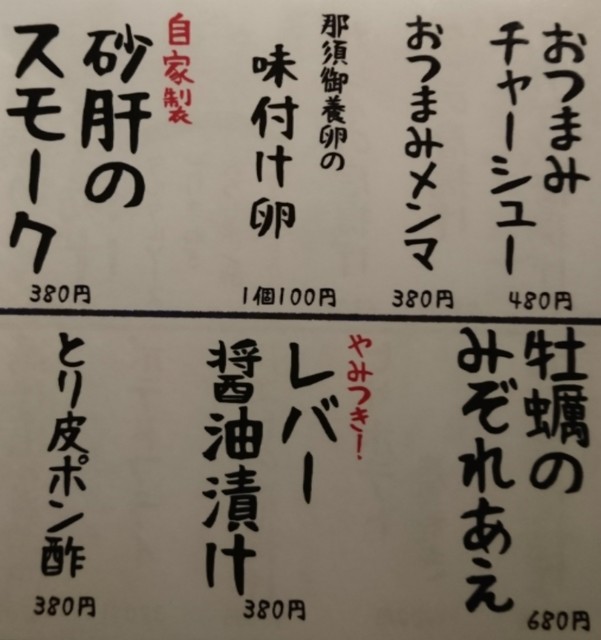 おつまみ
チャーシュー
480円
おつまみメンマ
380円
那須御養卵の
味付け卵
1個100円
自家製
砂肝の
スモーク
380円
牡蠣の
みぞれあえ
680円
やみつき!
レバー
醤油漬け
380円
とり皮ポン酢
380円